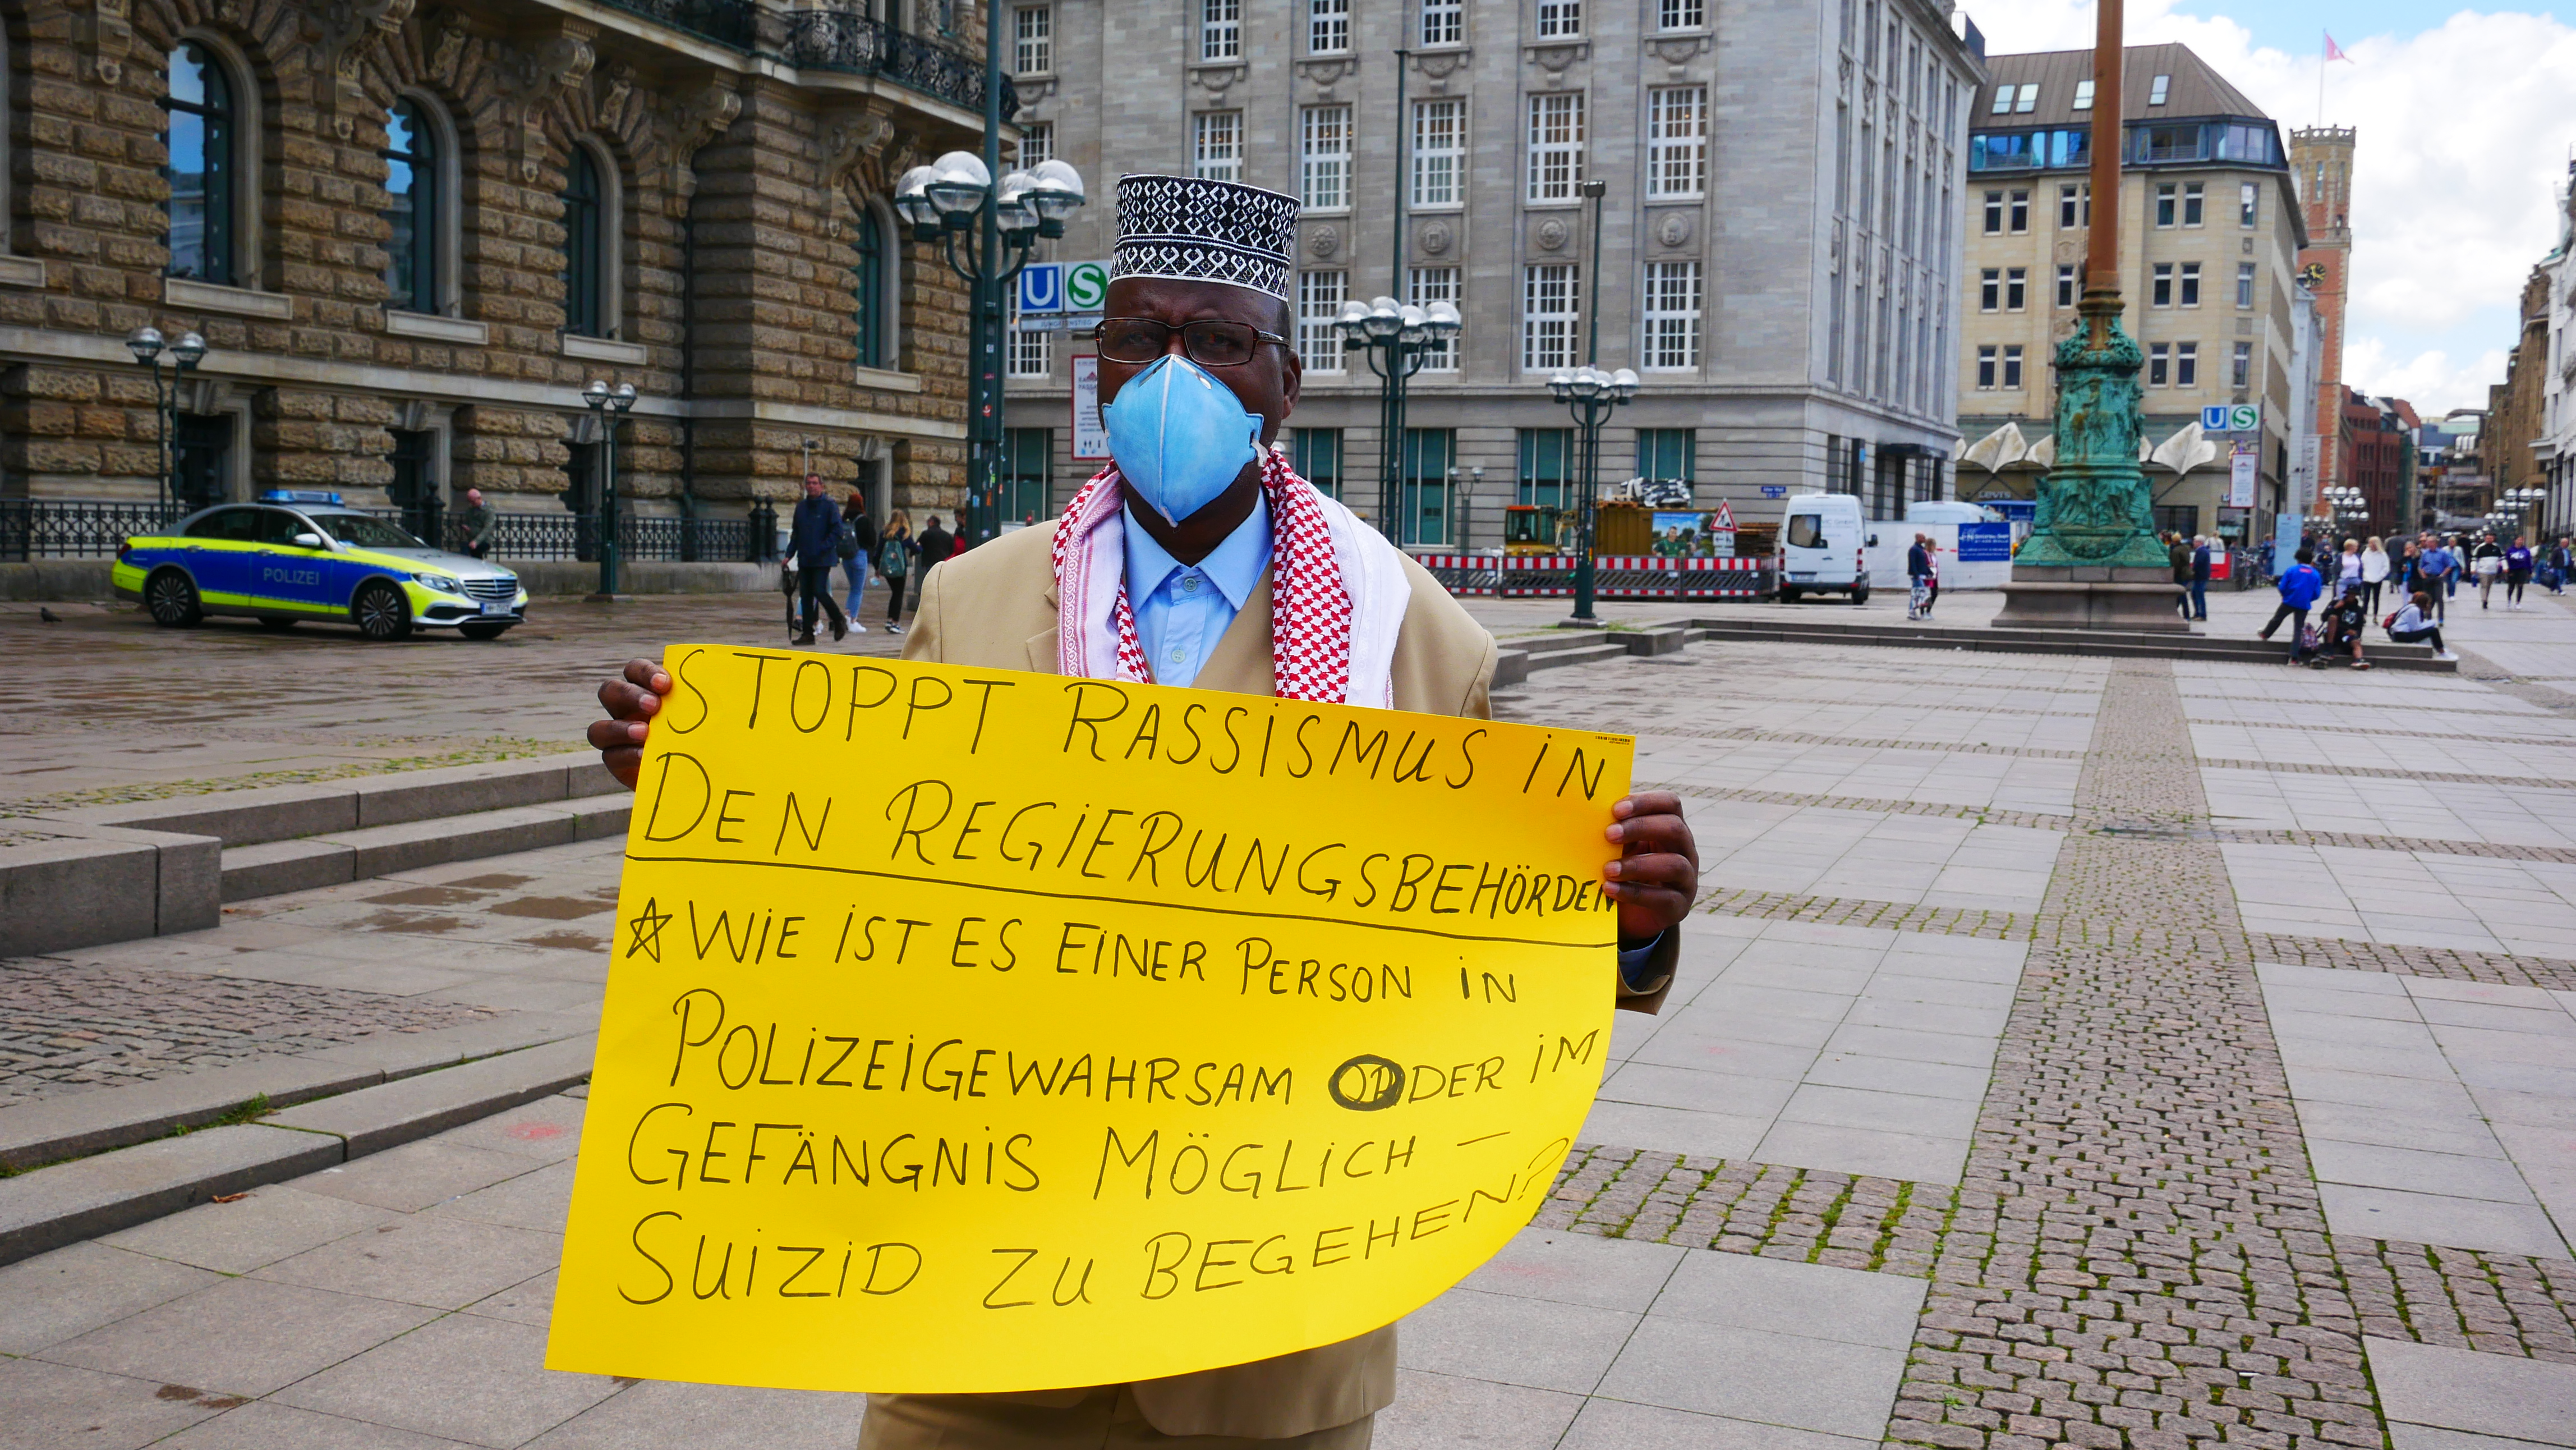 U S
JUNGFERNSTIEG
POLIZEI
U S
STOPPT RASSISMUS IN
DEN REGIERUNGSBEHÖRDEN
WIE IST ES EINER PERSON IN
POLIZEIGEWAHRSAM ODER IM
GEFÄNGNIS MÖGLICH –
SUIZID ZU BEGEHEN?